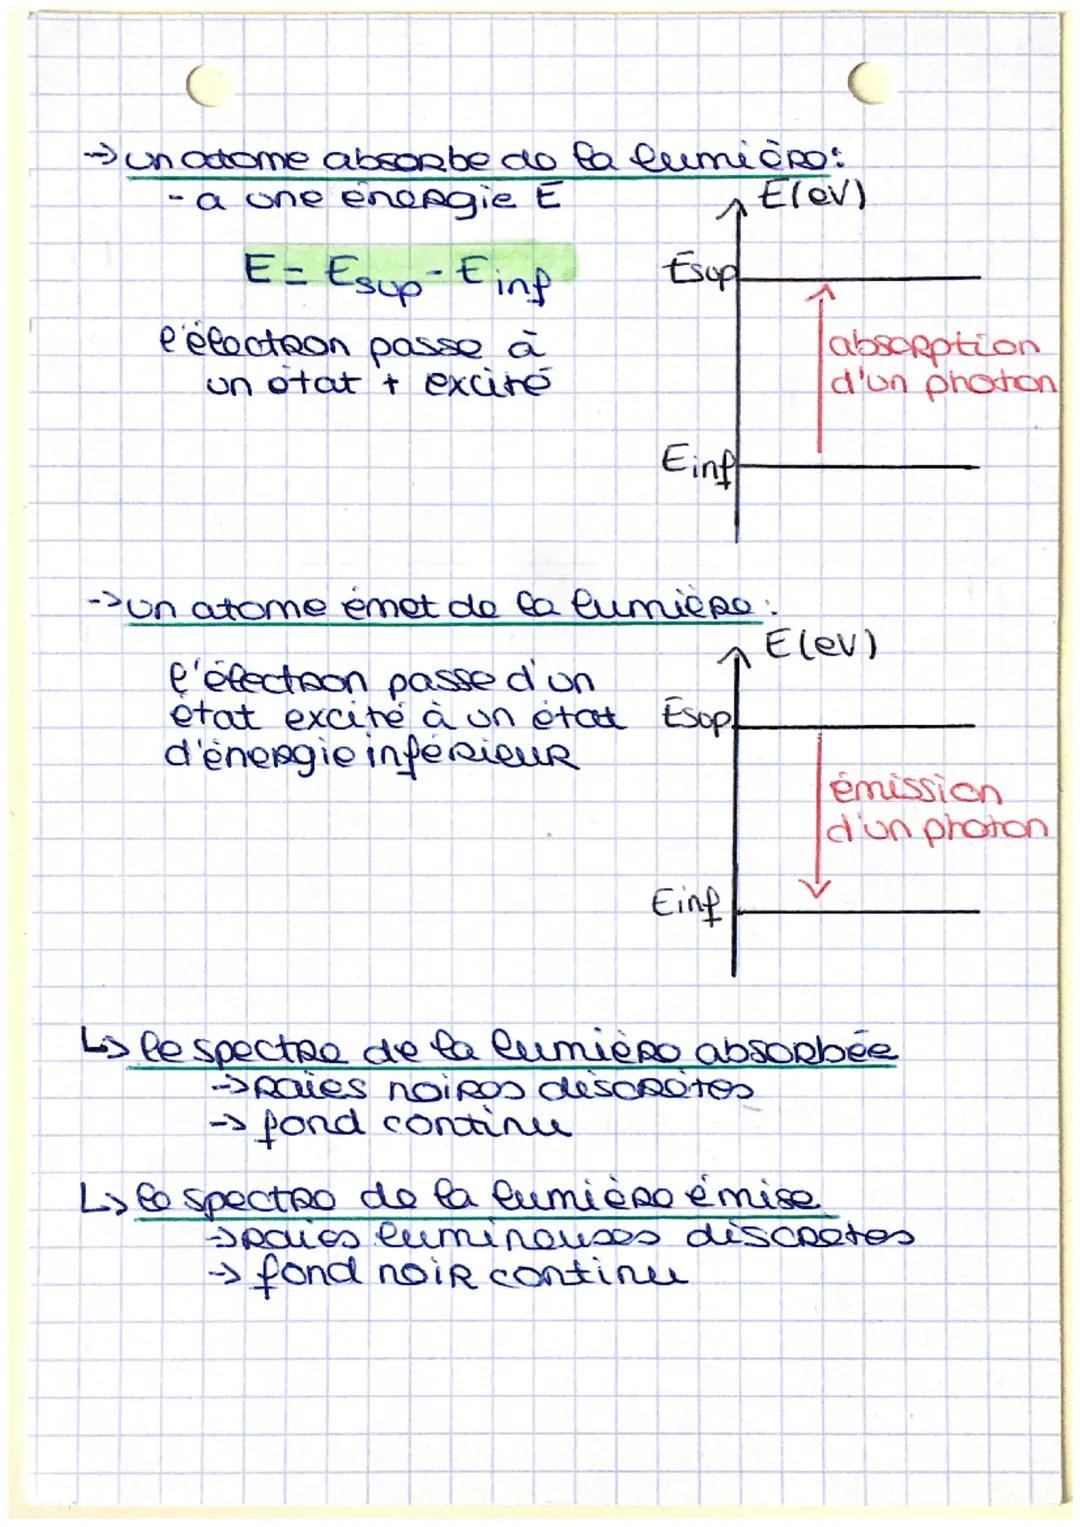 → un atome absorbe de la lumière:
- a une énergie E
E(eV)
E = Esup - Einf
Esup
l'électron passe à
un état + excité
absorption
d'un photon
Einf
-> un atome émet de la lumière :
E(eV)
l'électron passe d'un
état excité à un état
d'énergie inférieur
Esup
émission
d'un photon
Einf
↳ le spectre de la lumière absorbée
-> raies noires discrètes
-> fond continu
↳ le spectre de la lumière émise
-> raies lumineuses discretes
-> fond noir continu